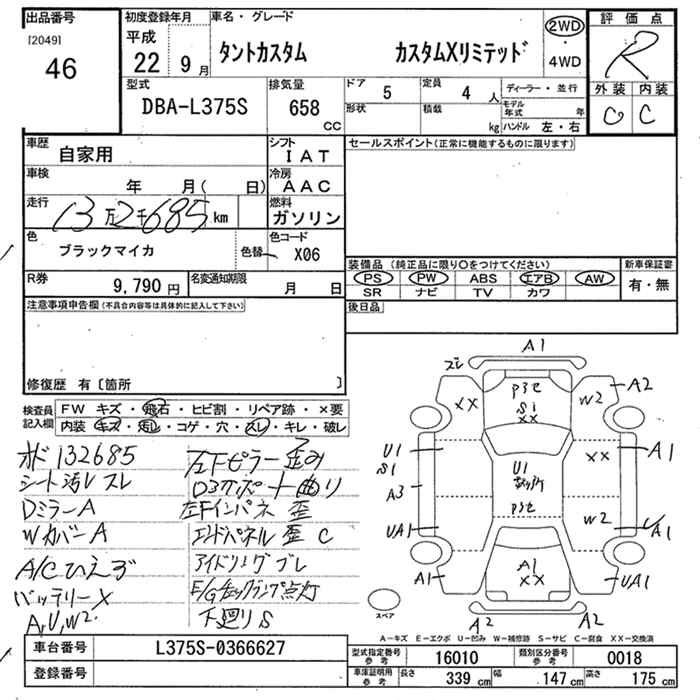 出品番号 初度登録年月 車名・グレード 評価点
[2049] 46 平成 22 9月 タントカスタム カスタムXリミテッド 2WD ・ 4WD R
型式 排気量 ドア 定員 ディーラー・並行 外装 内装
DBA-L375S 658 CC 5 4人
形状 積載 kg モデル年式 年 ハンドル 左・右 C
車歴 自家用 シフト IAT セールスポイント(正常に機能するものに限ります)
車検 年 月( 日) 冷房 AAC
走行 13万2千685km 燃料 ガソリン
色 ブラックマイカ 色替 色コード X06
装備品 (純正品に限り○をつけてください) 新車保証書
PS PW ABS エアB AW 有・無
SR ナビ TV カワ
R券 9,790円 名変通知期限 月 日
後日品
注意事項申告欄(不具合内容等は具体的に記入して下さい)
修復歴 有〔箇所 〕
検査員記入欄 FW キズ・飛石・ヒビ割・リペア跡・×要
内装 キズ・汚レ・コゲ・穴・スレ・キレ・破レ
オド132685
シート汚レスレ
DミラーA
WカバーA
A/Cひえず
バッテリーX
A,U,W2
左Fピラー歪み
左Fインパネ歪
エンドパネル歪 C
アイドリングブレ
E/Gチェックランプ点灯
下廻りS
A1
ズレ
A2
XX
P3セ
S1
XX
W2
U1
S1
XX
A1
A3
U1
P3セ
W2
UA1
A1
A1
XX
UA1
A2
A2
スペア
A-キズ E-エクボ U-凹み W-補修跡 S-サビ C-腐食 XX-交換済
車台番号 L375S-0366627 型式指定番号 参考 16010 類別区分番号 参考 0018
登録番号 車庫証明用 参考 長さ 339cm 幅 147cm 高さ 175cm